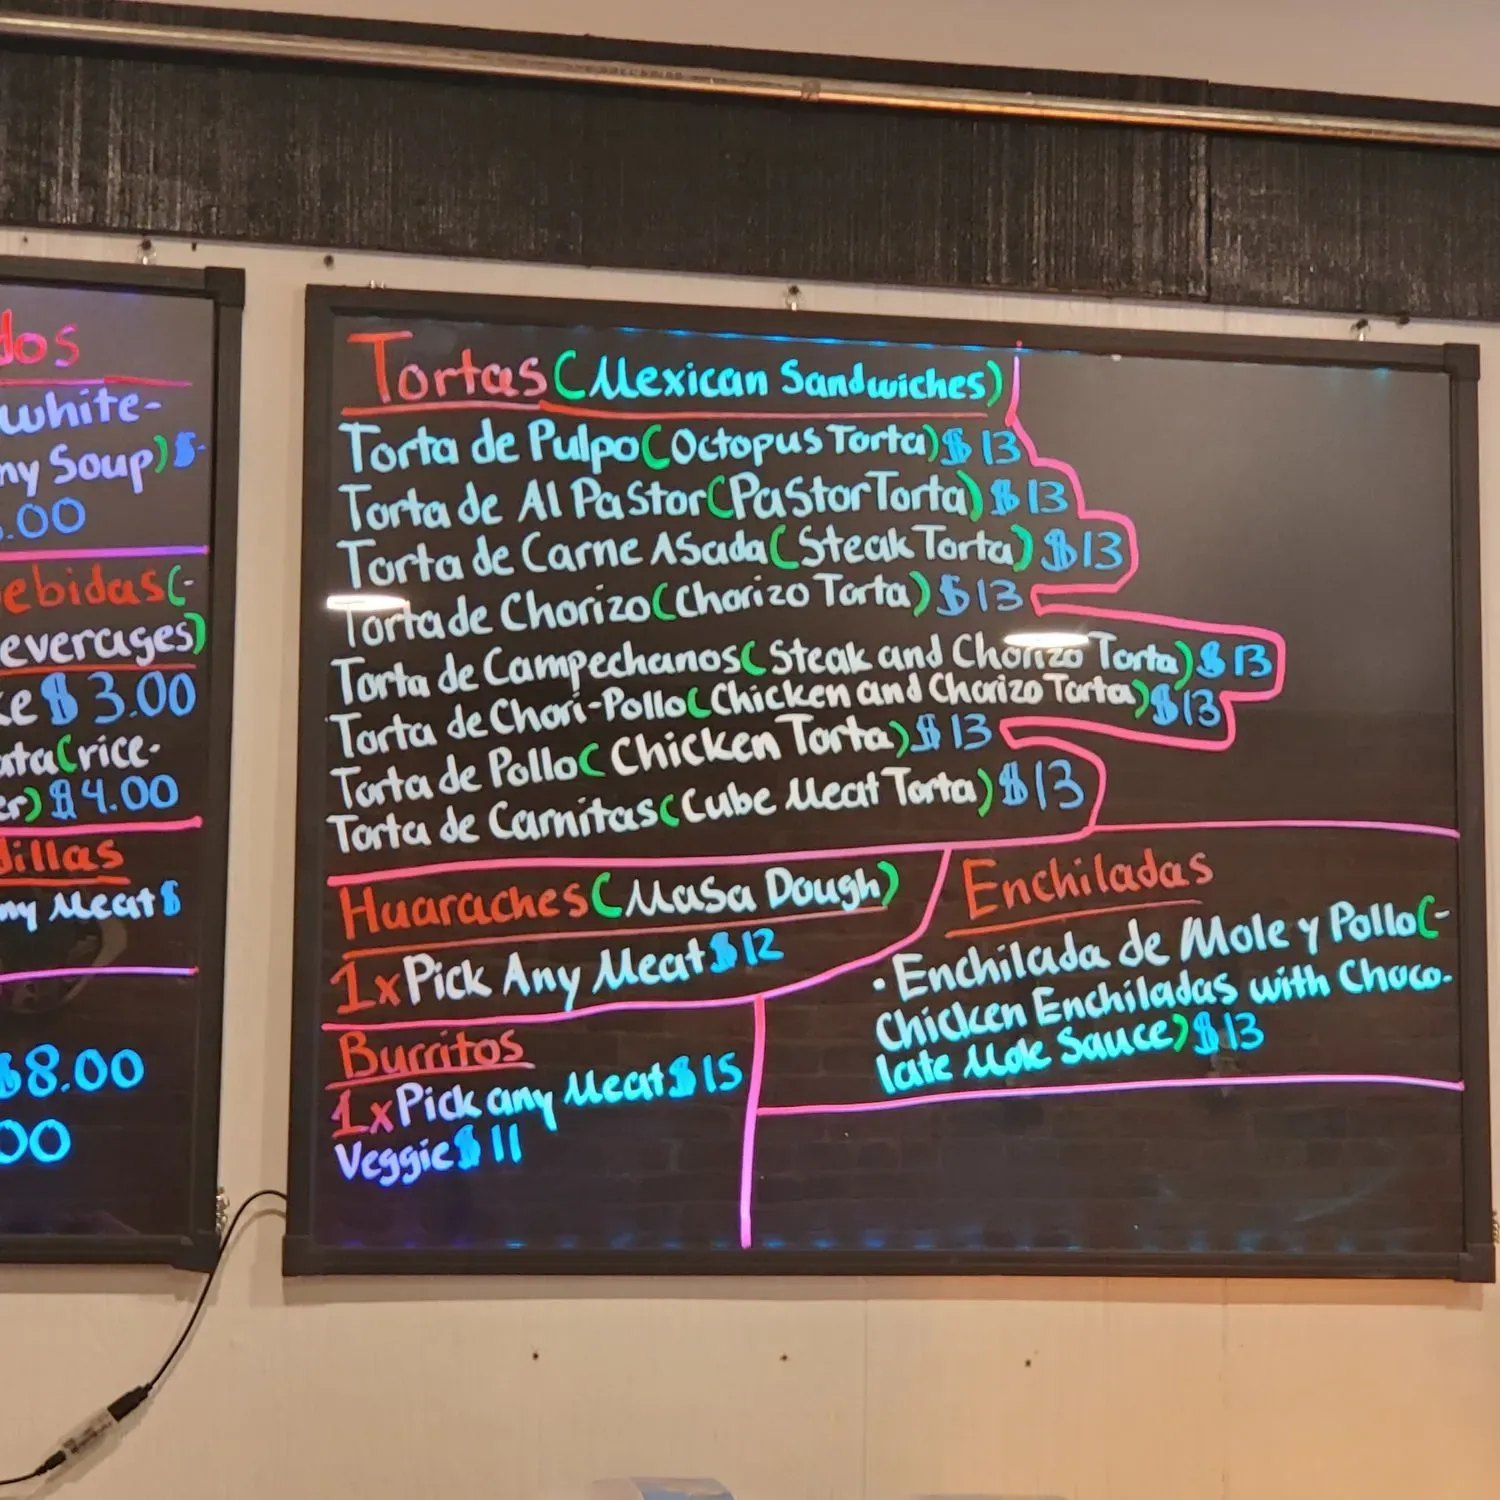 dos
white-
ny Soup) $-
.00
ebidas(-
everages)
ke $3.00
ata(rice-
er) $4.00
dillas
ny Meat $
$8.00
00
Tortas (Mexican Sandwiches)
Torta de Pulpo (Octopus Torta) $13
Torta de Al Pastor (Pastor Torta) $13
Torta de Carne Asada (Steak Torta) $13
Torta de Chorizo (Chorizo Torta) $13
Torta de Campechanos (Steak and Chorizo Torta) $13
Torta de Chori-Pollo (Chicken and Chorizo Torta) $13
Torta de Pollo (Chicken Torta) $13
Torta de Carnitas (Cube Meat Torta) $13
Huaraches (Masa Dough)
1x Pick Any Meat $12
Burritos
1x Pick any Meat $15
Veggie $11
Enchiladas
· Enchilada de Mole y Pollo (-
Chicken Enchiladas with Choco-
late Mole Sauce) $13